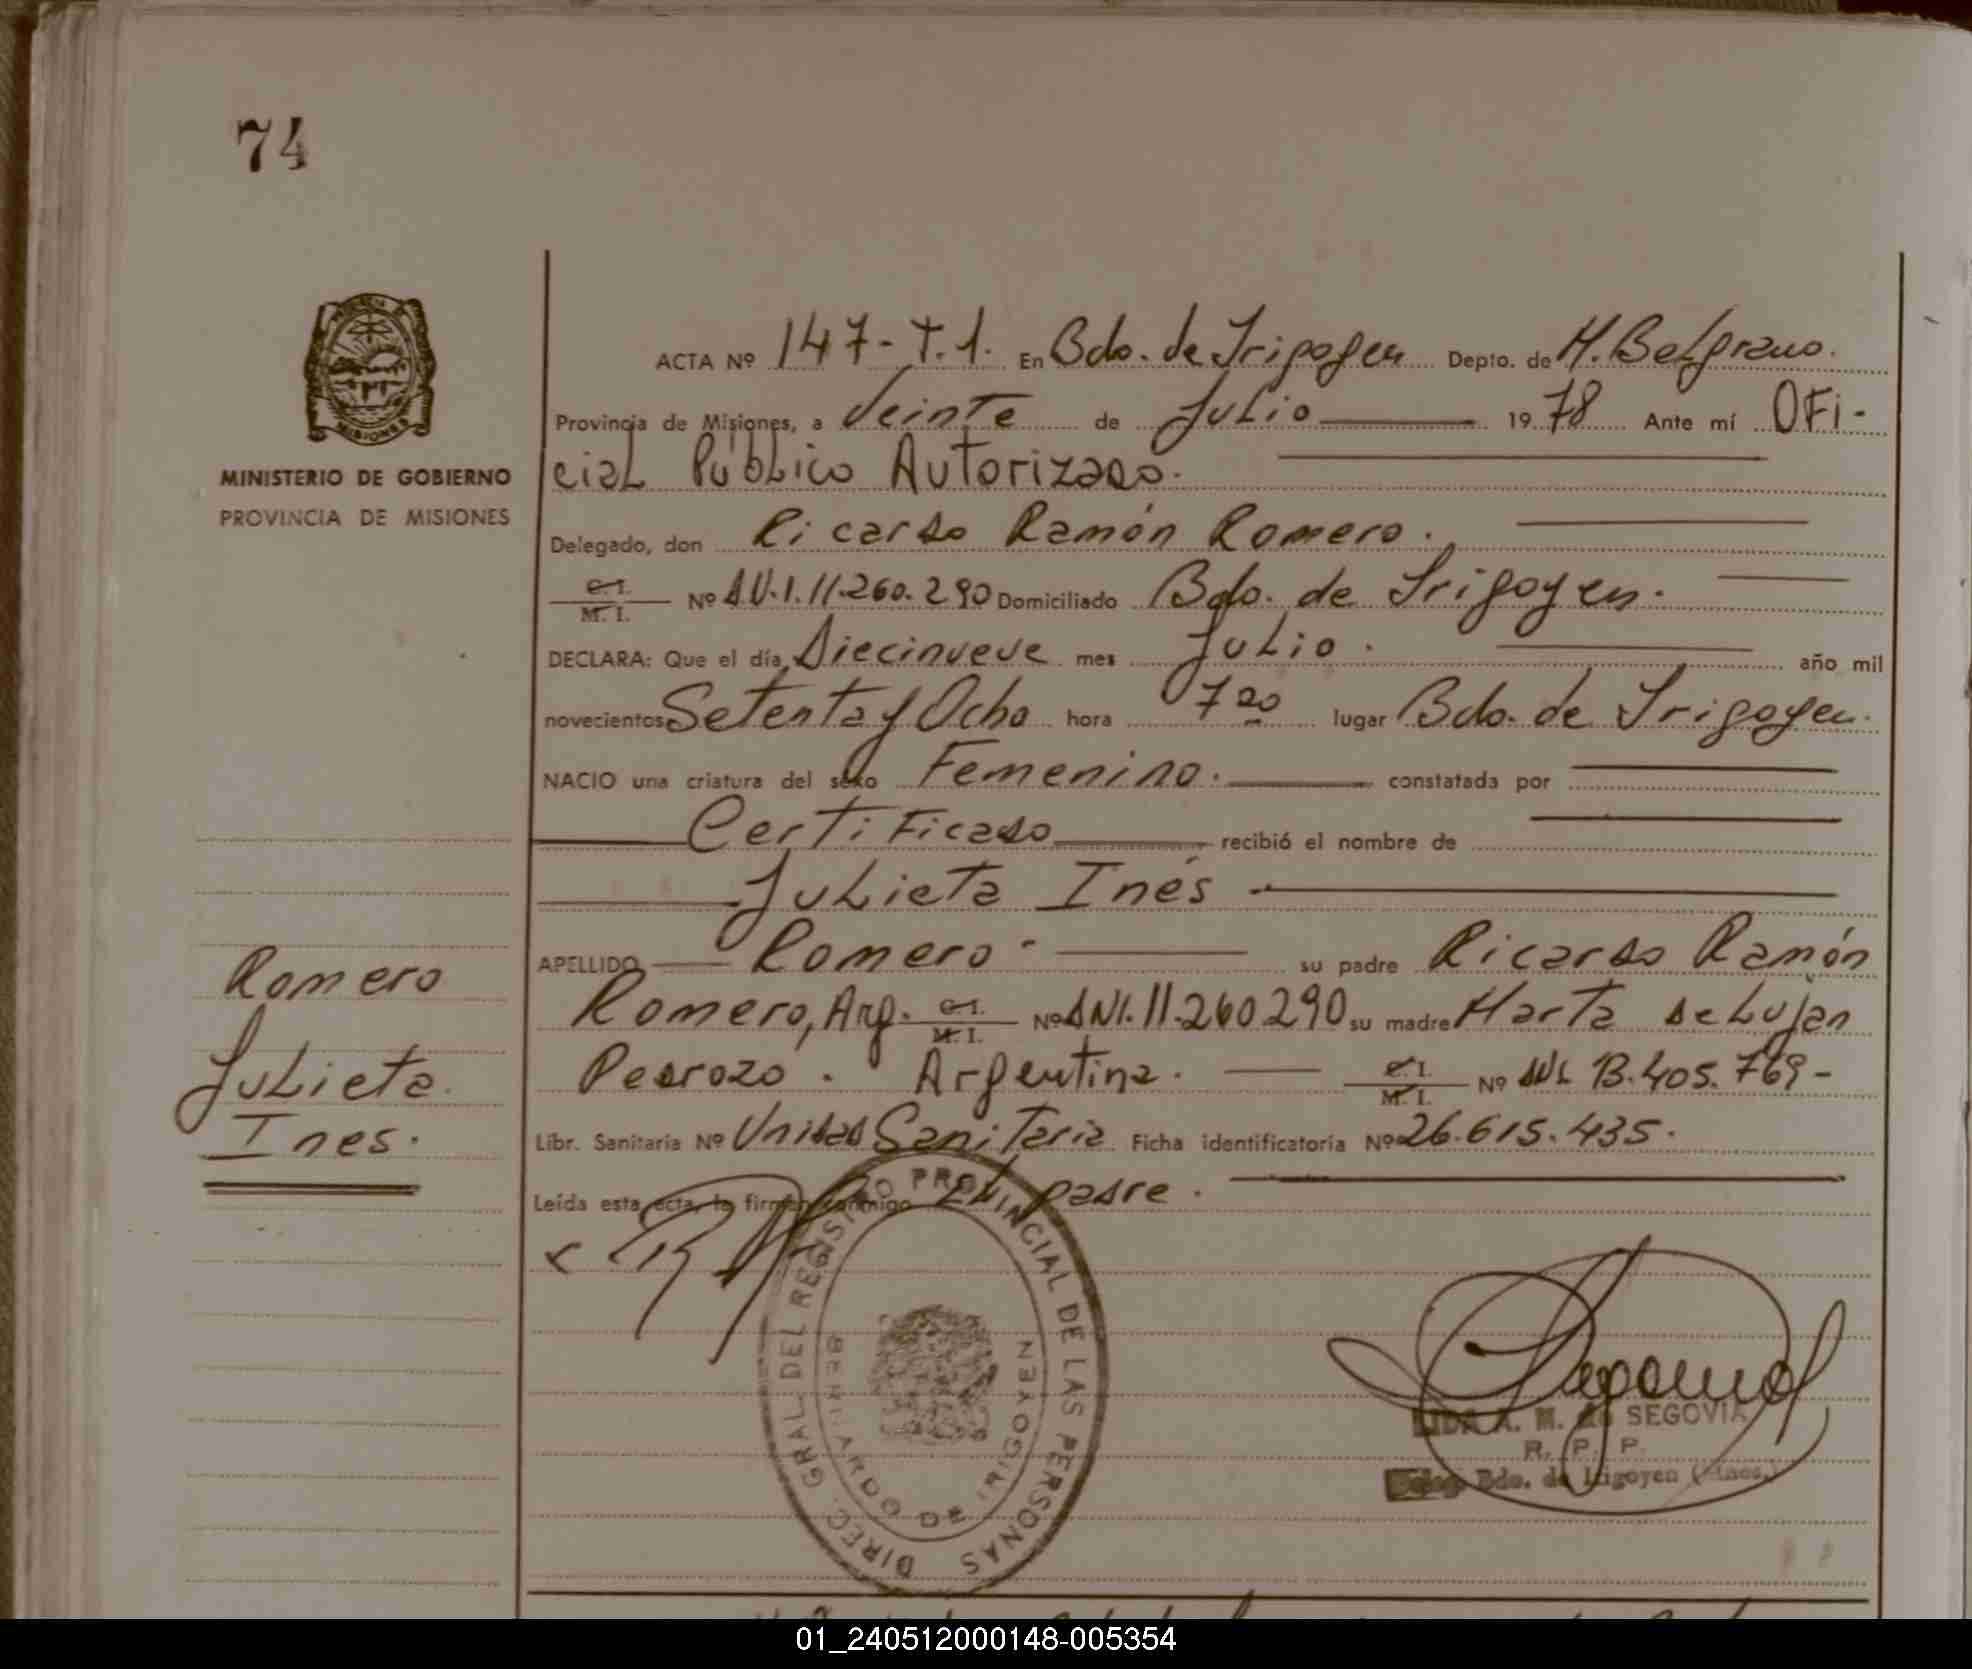 74
PROVINCIA DE
MISIONES
MINISTERIO DE GOBIERNO
PROVINCIA DE MISIONES
ACTA Nº 147-T.1. En Bdo. de Irigoyen Depto. de M. Belgrano.
Provincia de Misiones, a Veinte de Julio 1978 Ante mí OFi-
cial Público Autorizado.
Delegado, don Ricardo Ramón Romero.
C.I. M.I. Nº D.N.I. 11.260.290 Domiciliado Bdo. de Irigoyen.
DECLARA: Que el día Diecinueve mes Julio. año mil
novecientos Setenta y Ocho hora 7 20 lugar Bdo. de Irigoyen.
NACIO una criatura del sexo Femenino. constatada por
Certificado recibió el nombre de
Julieta Inés
APELLIDO Romero. su padre Ricardo Ramón
Romero, Arg. C.I. M.I. Nº DNI. 11.260290 su madre Marta de Luján
Pedrozo. Argentina. C.I. M.I. Nº DNI. 13.405.769-
Libr. Sanitaria Nº Unidad Sanitaria Ficha identificatoria Nº 26.615.435.
Leída esta acta, la firman conmigo El padre.
Romero
Julieta
Ines.
DIREC. GRAL. DEL REGISTRO PROVINCIAL DE LAS PERSONAS
BERNARDO DE IRIGOYEN
LIDA A. M. de SEGOVIA
R. P. P.
Deleg. Bdo. de Irigoyen (Mnes.)
01_240512000148-005354